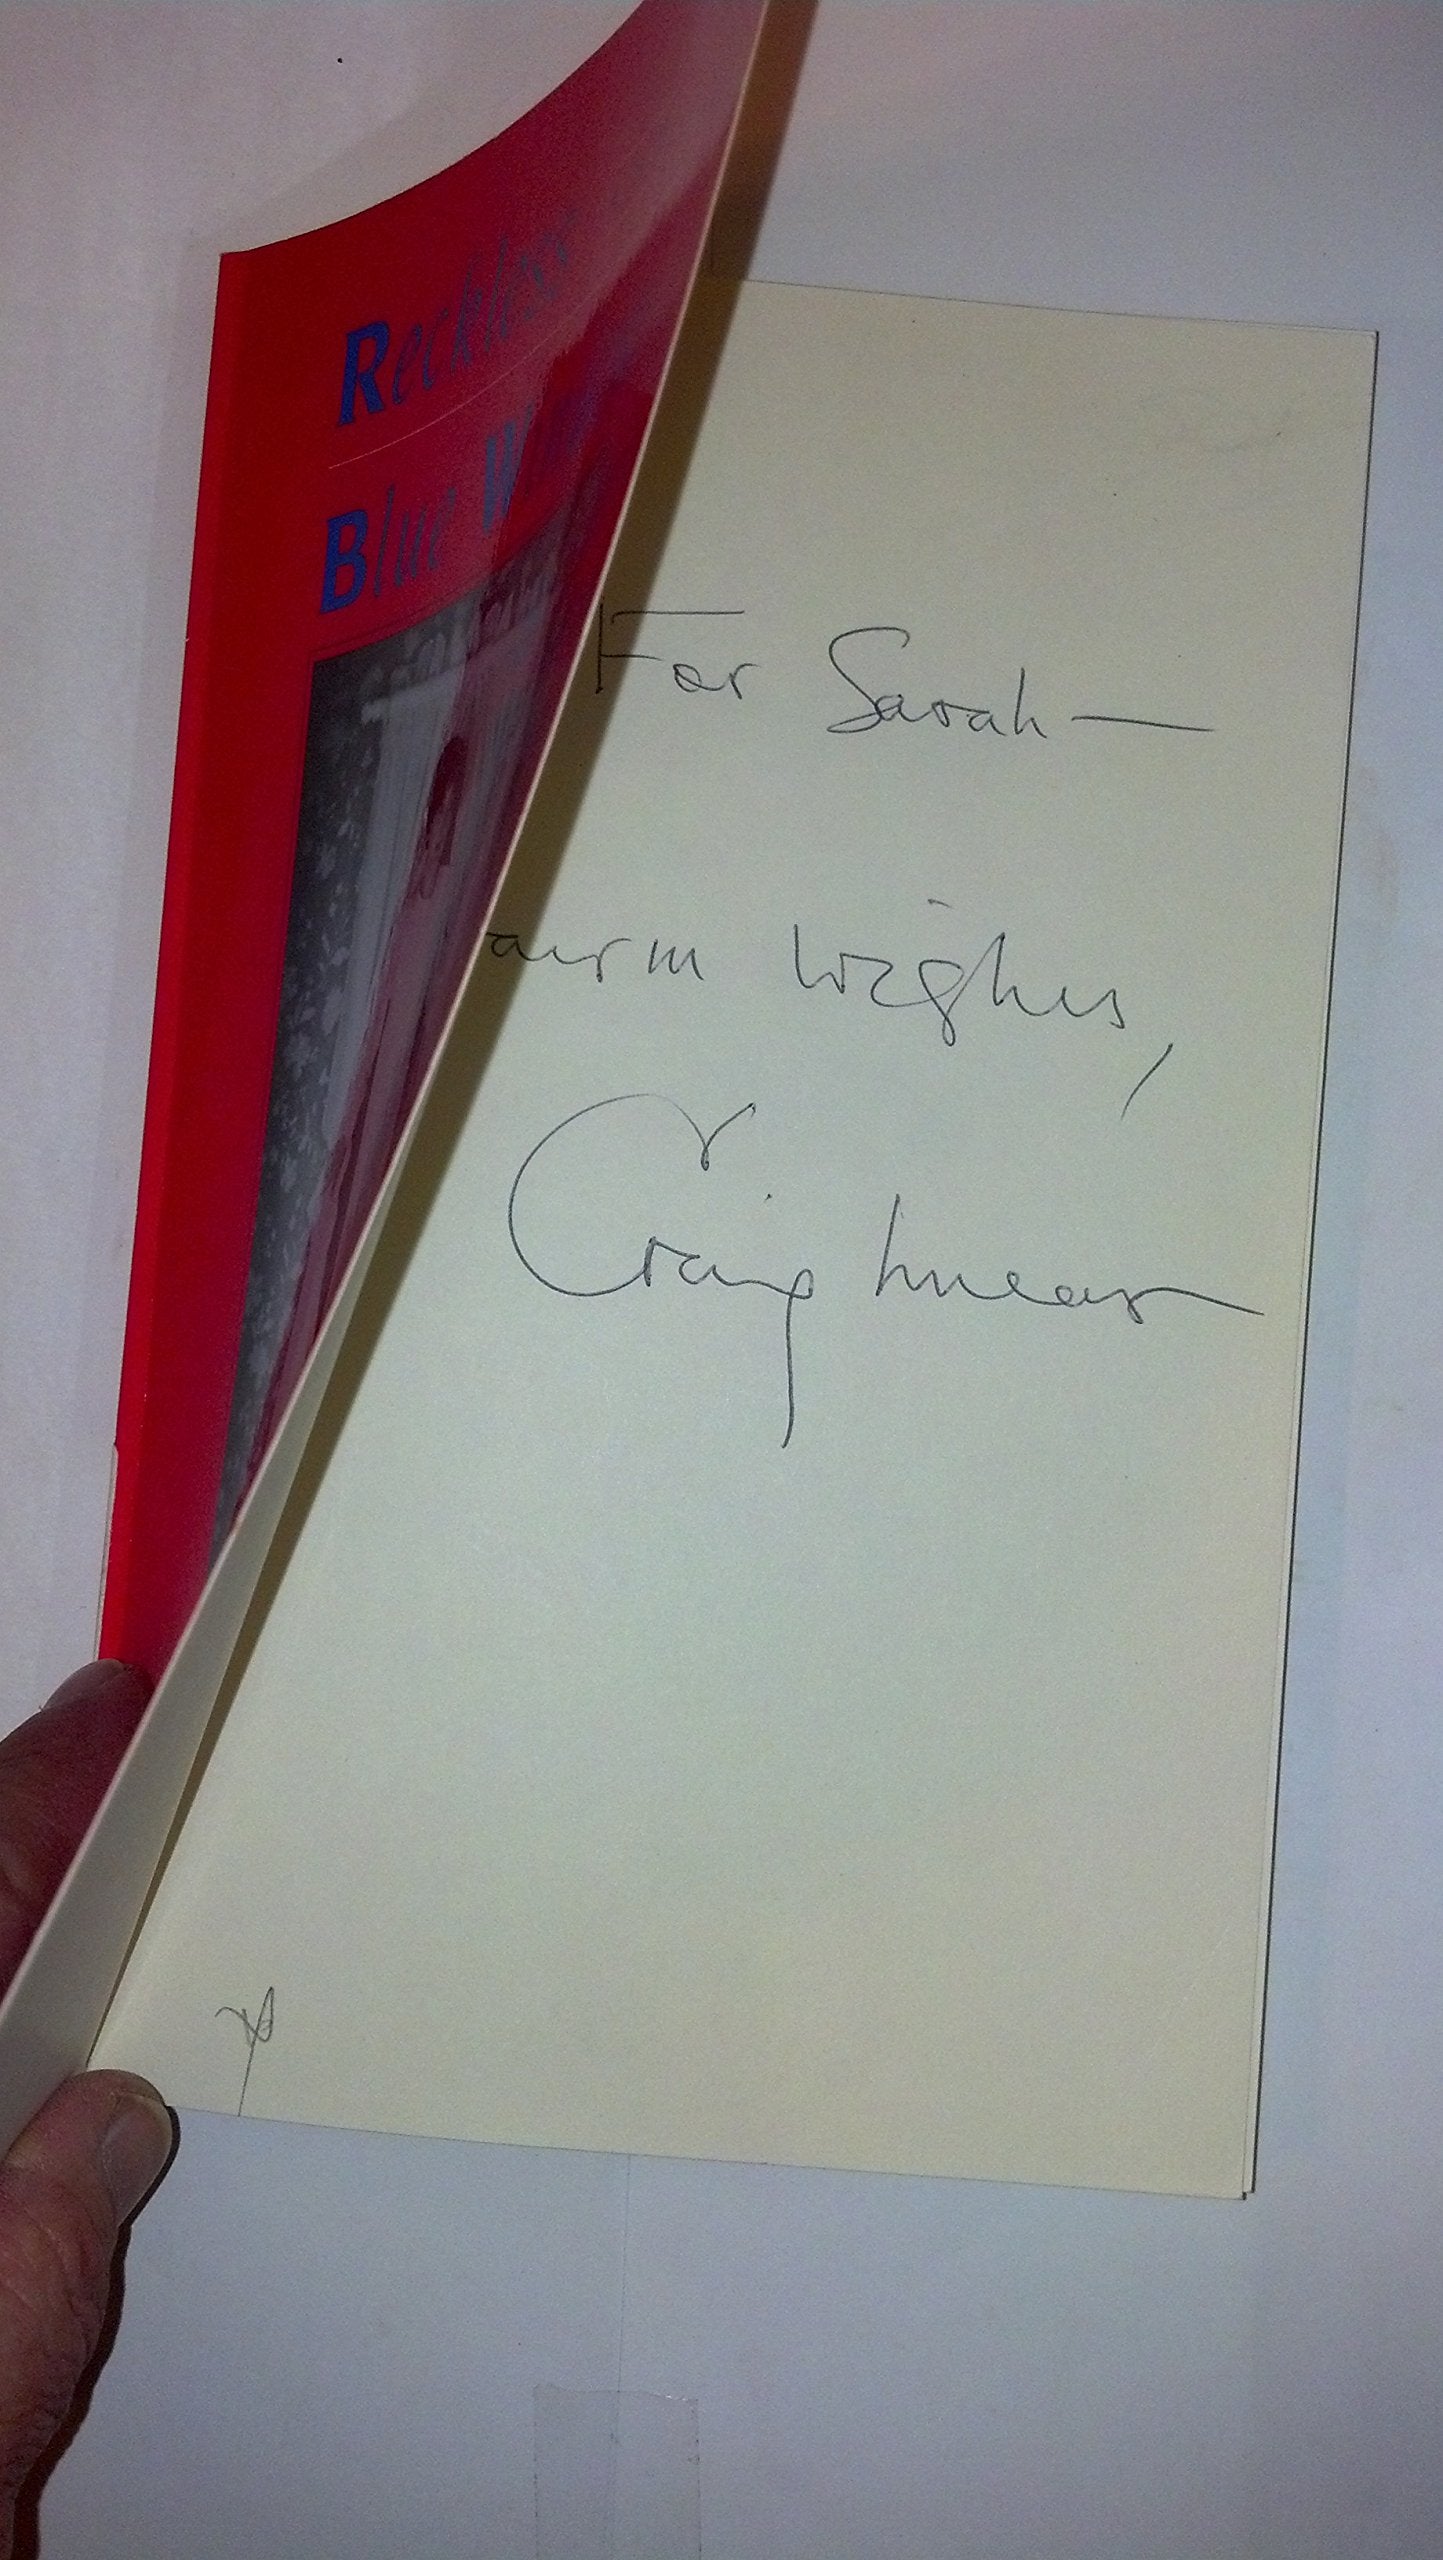 Reckless
Blue W
For Sarah—
arm wishes,
Craig Lucas